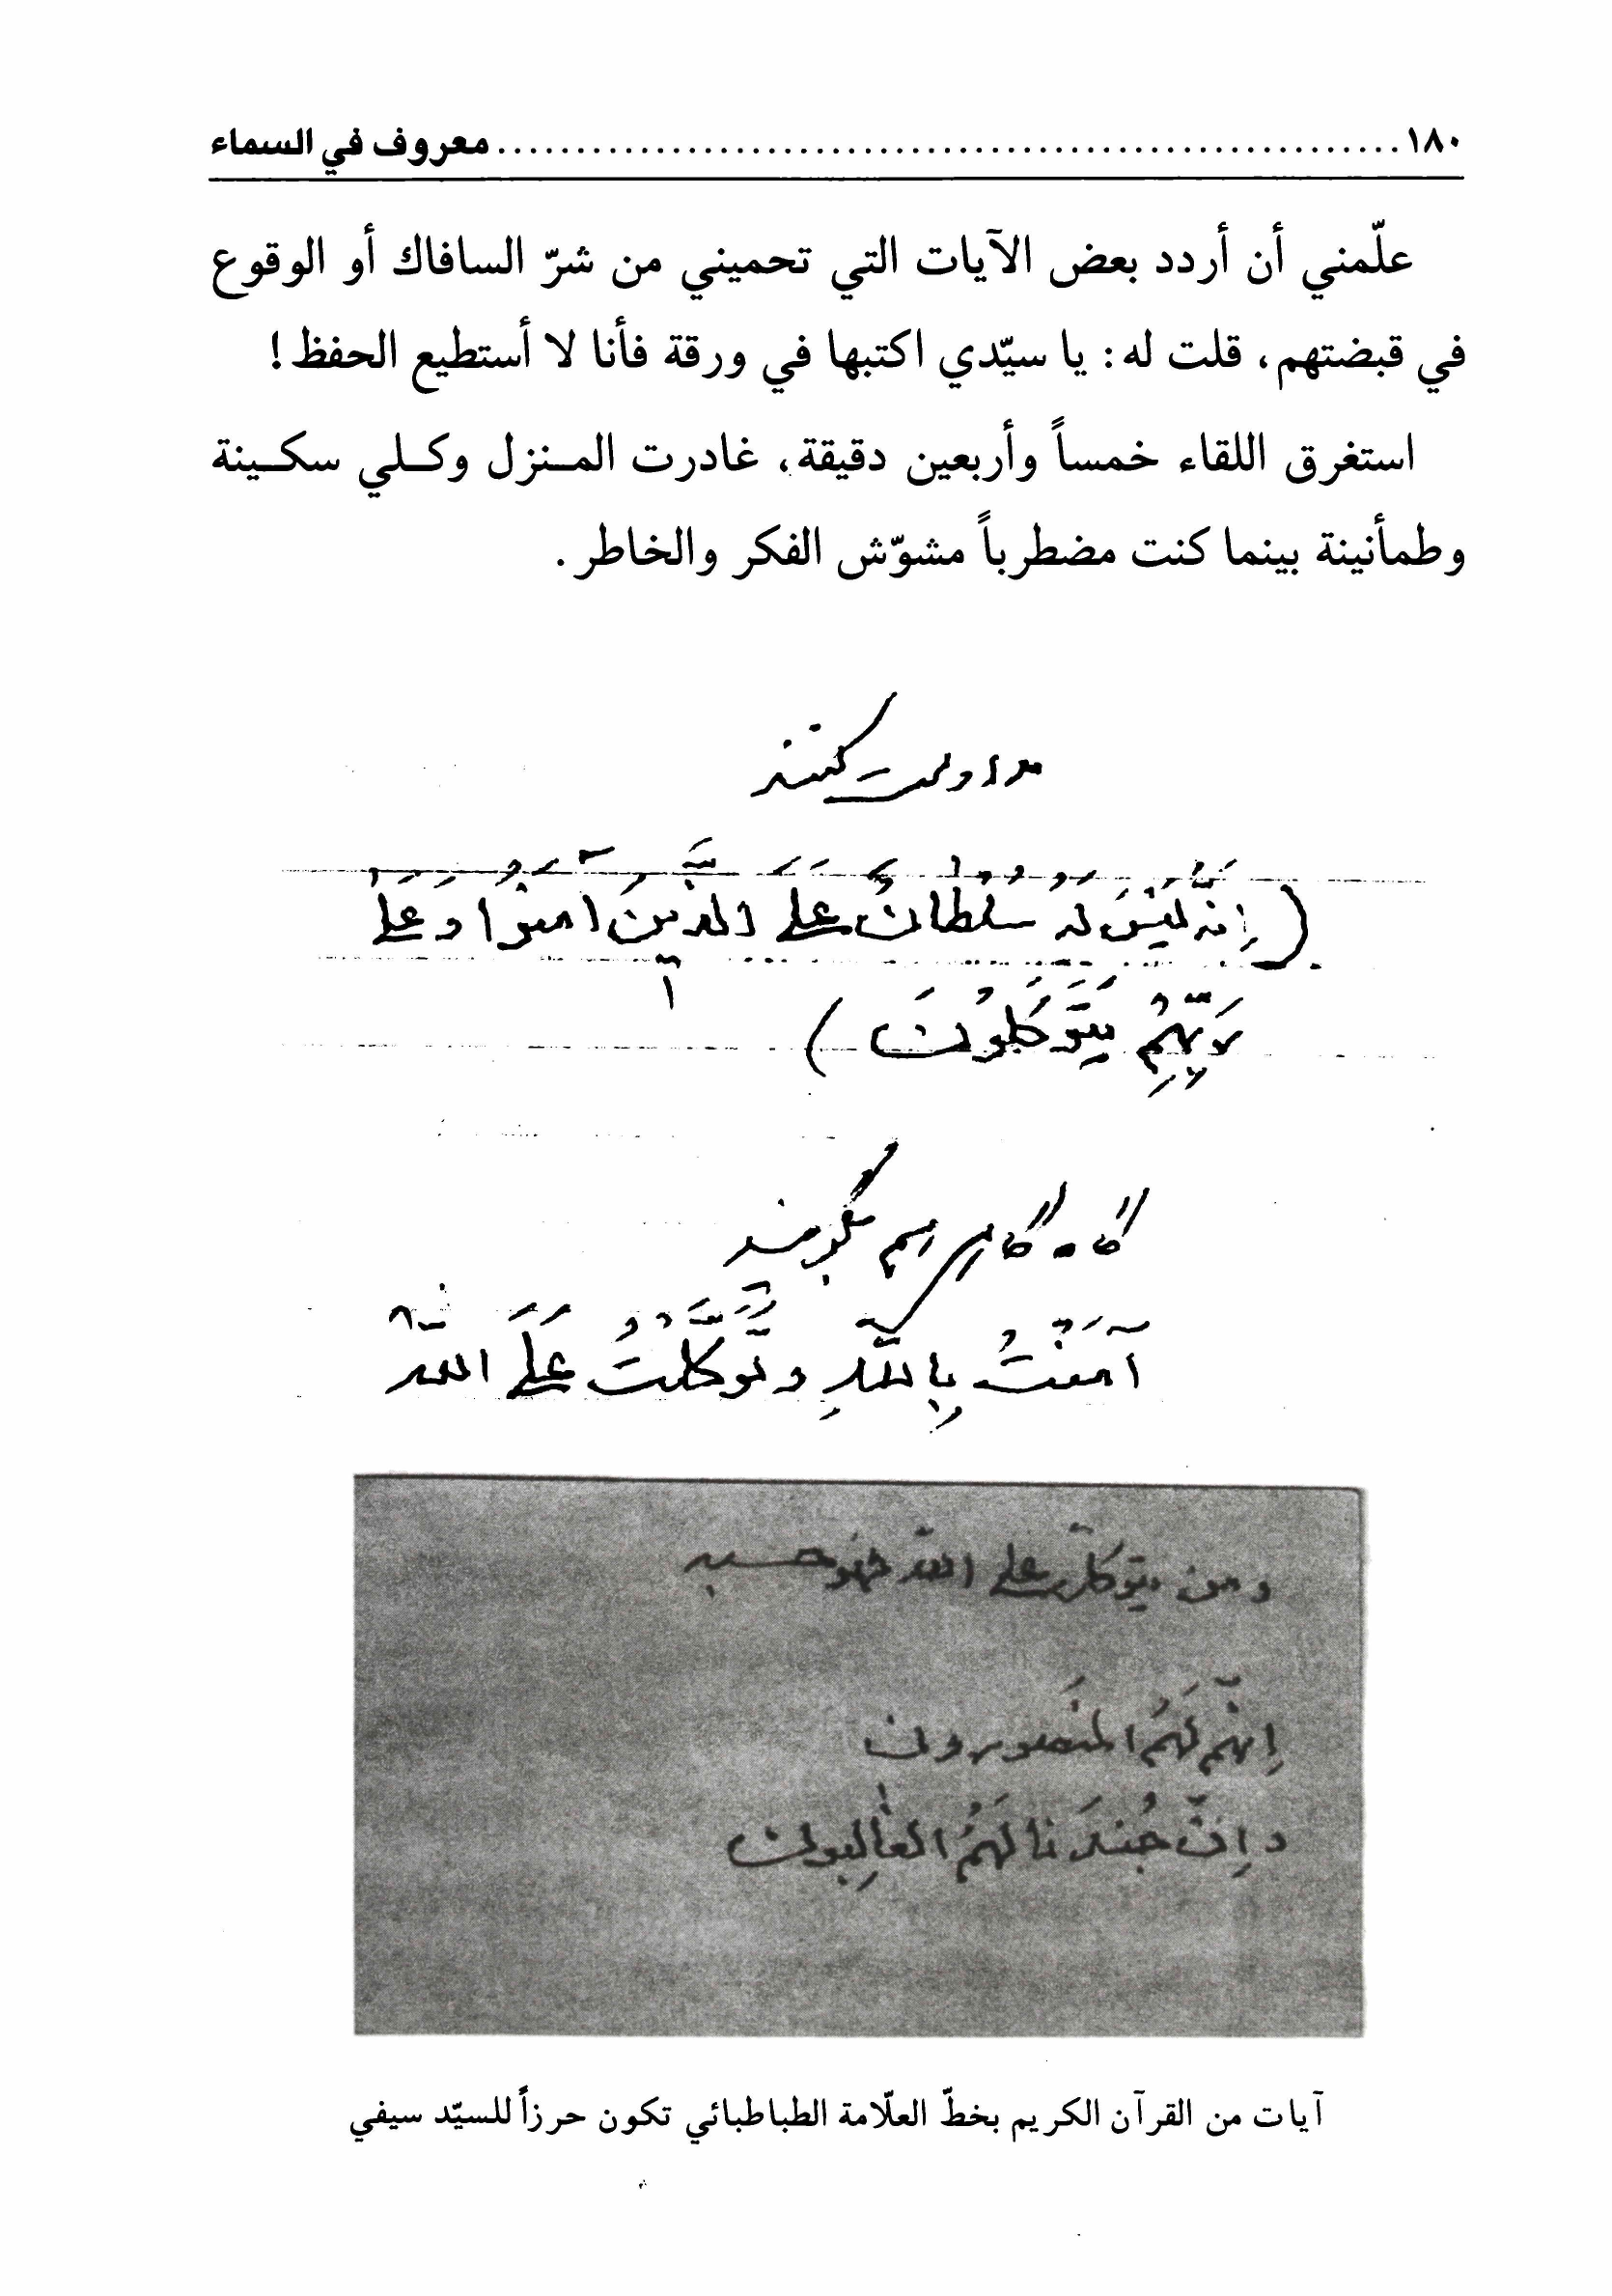 ١٨٠ ........................................................ معروف في السماء
علّمني أن أردد بعض الآيات التي تحميني من شرّ السافاك أو الوقوع
في قبضتهم، قلت له: يا سيّدي اكتبها في ورقة فأنا لا أستطيع الحفظ!
استغرق اللقاء خمساً وأربعين دقيقة، غادرت المـنزل وكـلي سكـينة
وطمأنينة بينما كنت مضطرباً مشوّش الفكر والخاطر.
مداومت كنند
(إِنَّهُ لَيْسَ لَهُ سُلْطَانٌ عَلَى الَّذِينَ آمَنُوا وَعَلَىٰ
رَبِّهِمْ يَتَوَكَّلُونَ)
گاه گاه هم بگویند
آمَنْتُ بِاللَّهِ وَتَوَكَّلْتُ عَلَى اللَّهِ
ومن يتوكّل على اللّه فهو حسبه
إِنَّهم لَهُمُ المَنصورون
وإِنّ جُندَنا لَهُمُ الغالِبون
آيات من القرآن الكريم بخطّ العلّامة الطباطبائي تكون حرزاً للسيّد سيفي